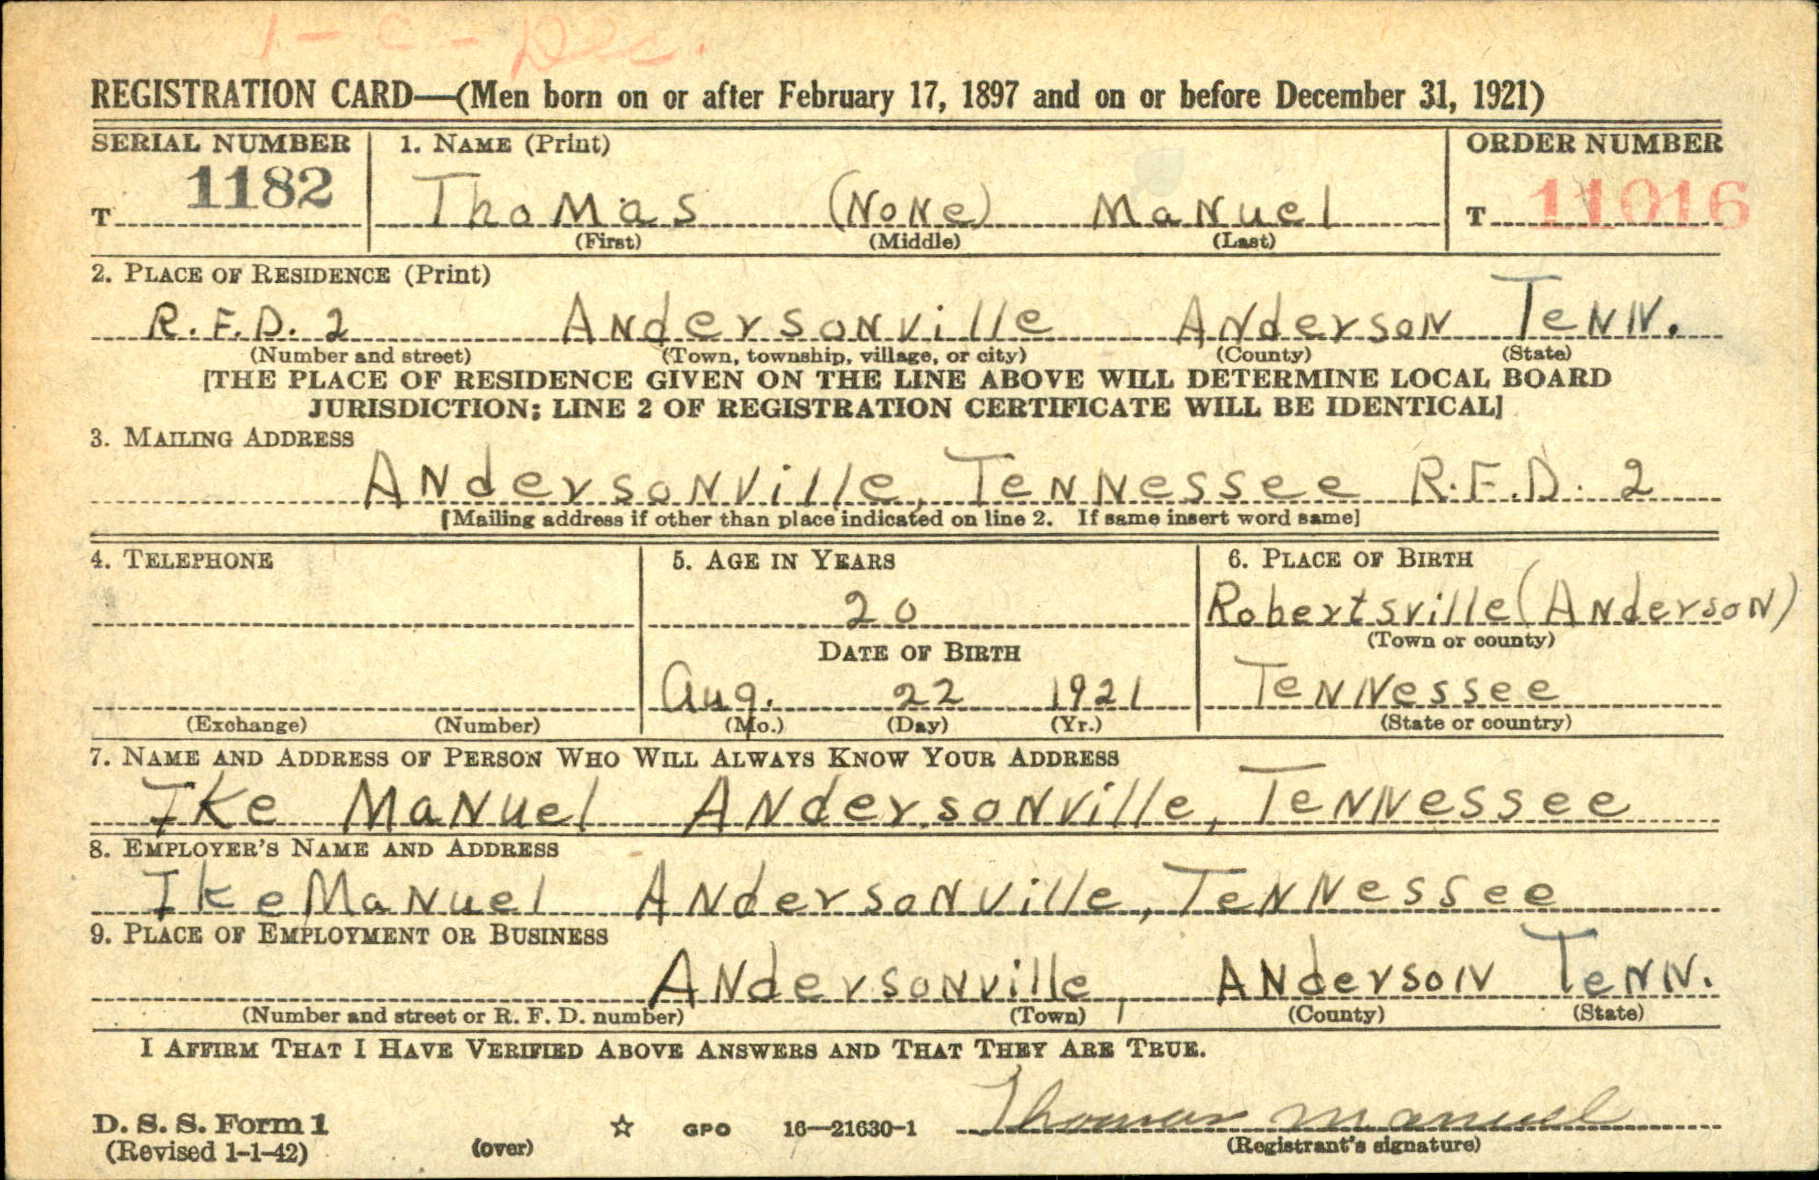 1-C-Dec.
REGISTRATION CARD—(Men born on or after February 17, 1897 and on or before December 31, 1921)
SERIAL NUMBER 1. NAME (Print) ORDER NUMBER
T 1182 Thomas (None) Manuel T 11016
(First) (Middle) (Last)
2. PLACE OF RESIDENCE (Print)
R.F.D. 2 Andersonville Anderson Tenn.
(Number and street) (Town, township, village, or city) (County) (State)
[THE PLACE OF RESIDENCE GIVEN ON THE LINE ABOVE WILL DETERMINE LOCAL BOARD
JURISDICTION; LINE 2 OF REGISTRATION CERTIFICATE WILL BE IDENTICAL]
3. MAILING ADDRESS
Andersonville, Tennessee R.F.D. 2
[Mailing address if other than place indicated on line 2. If same insert word same]
4. TELEPHONE 5. AGE IN YEARS 6. PLACE OF BIRTH
20 Robertsville (Anderson)
DATE OF BIRTH (Town or county)
Aug. 22 1921 Tennessee
(Exchange) (Number) (Mo.) (Day) (Yr.) (State or country)
7. NAME AND ADDRESS OF PERSON WHO WILL ALWAYS KNOW YOUR ADDRESS
Ike Manuel Andersonville, Tennessee
8. EMPLOYER'S NAME AND ADDRESS
Ike Manuel Andersonville, Tennessee
9. PLACE OF EMPLOYMENT OR BUSINESS
Andersonville, Anderson Tenn.
(Number and street or R. F. D. number) (Town) (County) (State)
I AFFIRM THAT I HAVE VERIFIED ABOVE ANSWERS AND THAT THEY ARE TRUE.
D. S. S. Form 1 ☆ GPO 16—21630-1 Thomas Manuel
(Revised 1-1-42) (over) (Registrant's signature)